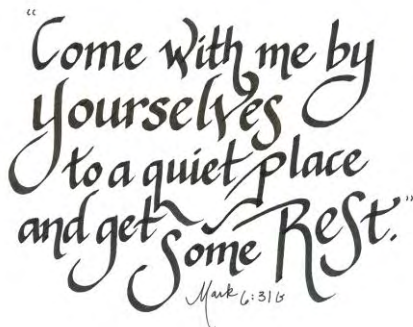 "Come with me by
yourselves
to a quiet place
and get some Rest."
Mark 6:31b